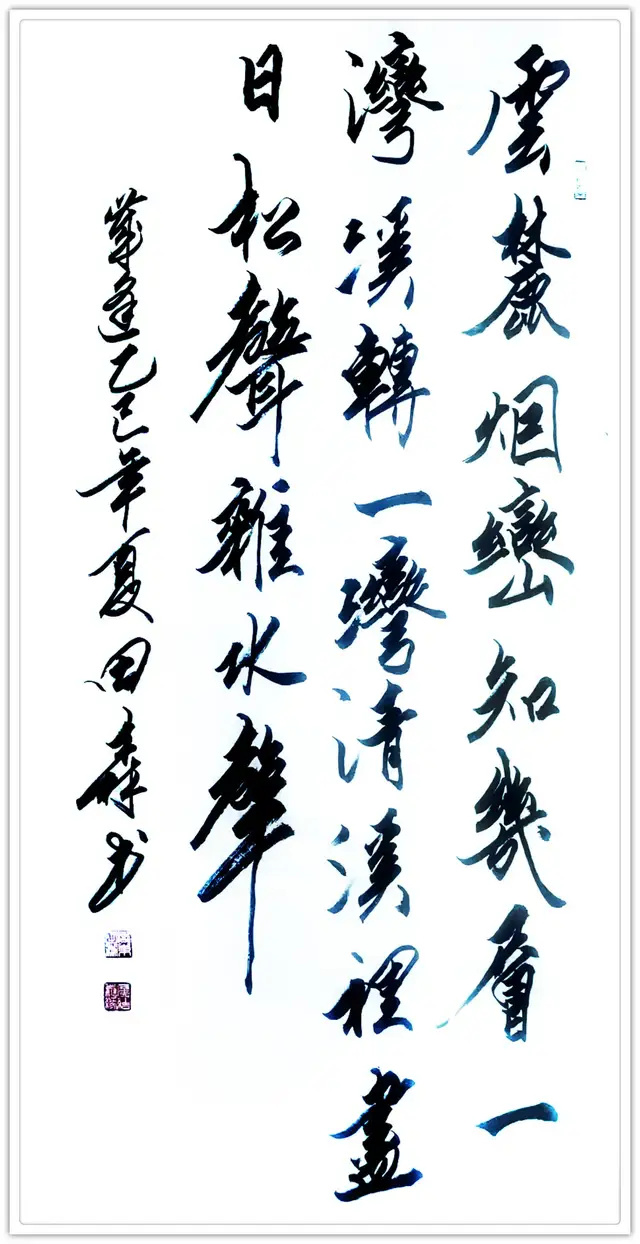 雲麓烟巒知幾層一
灣溪轉一灣清溪裡盡
日松聲雜水聲
歲逢乙巳年夏田森书